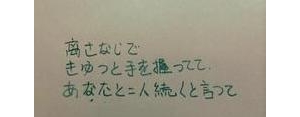 離さなじで
きゅっと手を握ってて
あなたと二人続くと言って